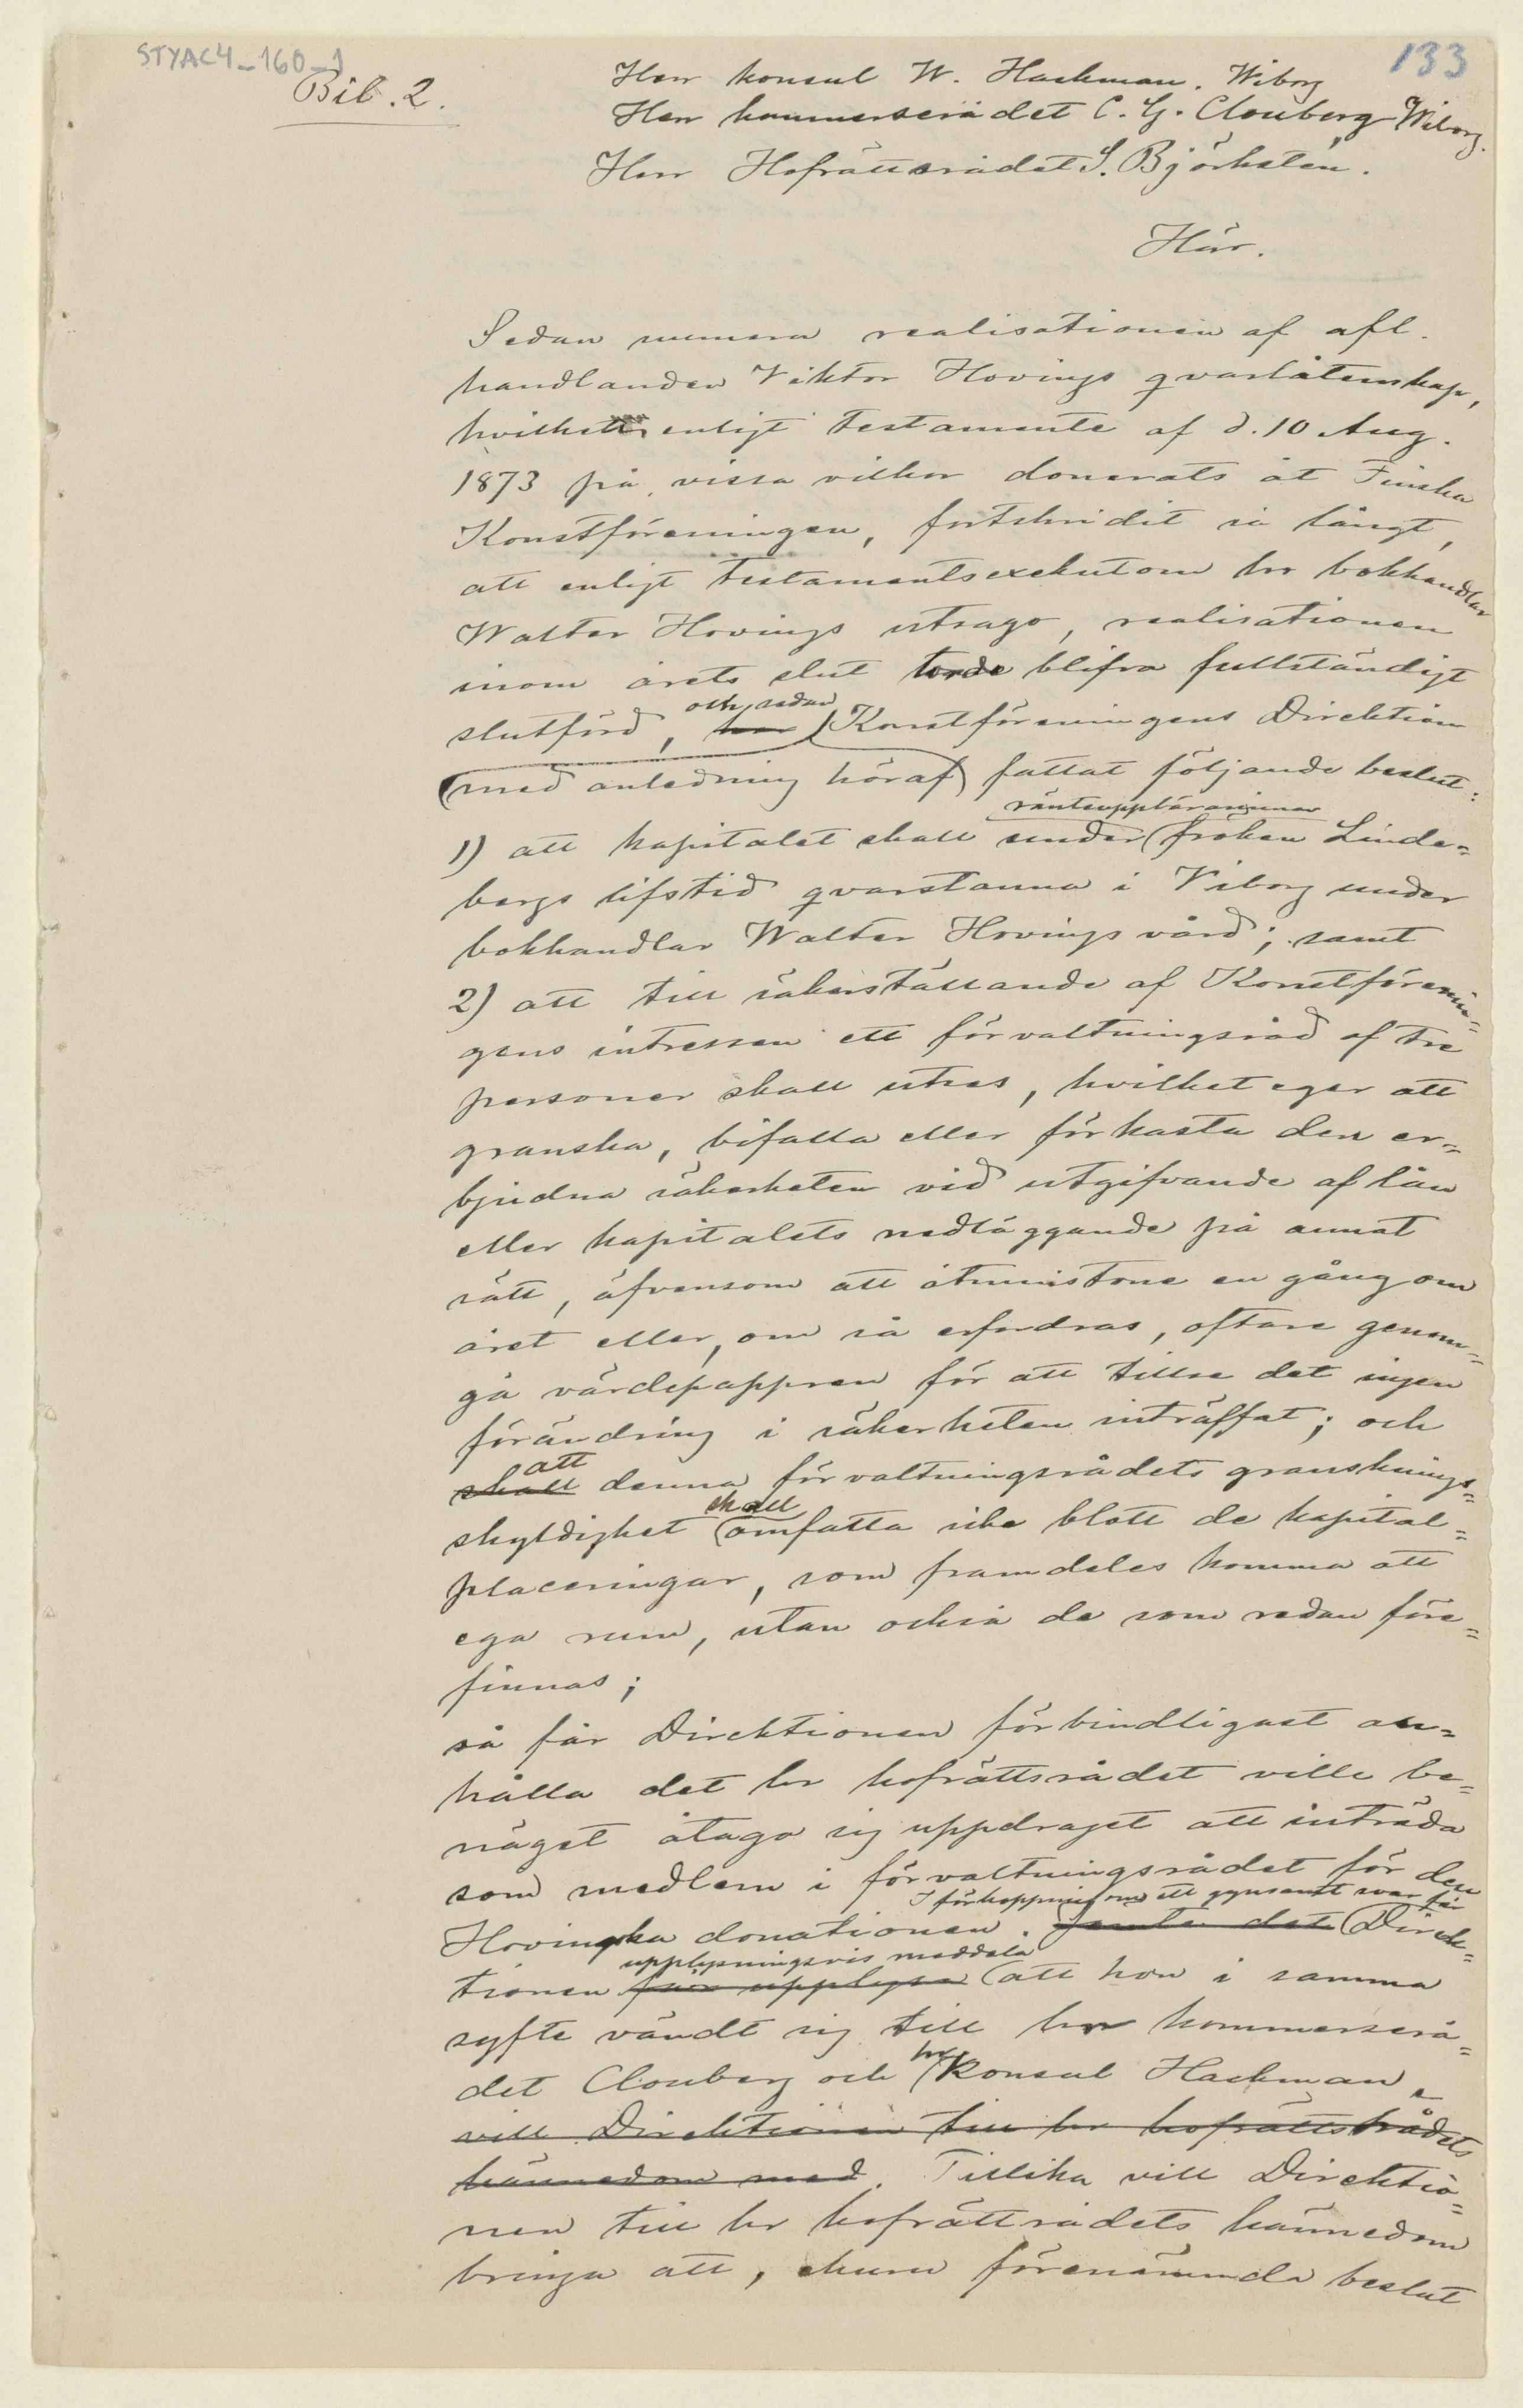 STYAC4_160_1
133
Bil. 2.
Herr konsul W. Hackman. Wiborg
Herr kommerserådet C. G. Clouberg Wiborg.
Herr Hofrättsrådet S. Björkstén.
Här.
Sedan numera realisationen af afl.
handlanden Viktor Hovings qvarlåtenskap,
hvilket enligt testamente af d. 10 Aug.
1873 på vissa vilkor donerats åt Finska
Konstföreningen, fortskridit så långt,
att enligt testamentsexekutorn hr bokhandlar
Walter Hovings utsago, realisationen
inom årets slut torde blifva fullständigt
och sedan
slutförd, har Konstföreningens Direktion
med anledning häraf fattat följande beslut:
ränteuppbärarinnan
1) att kapitalet skall under fröken Linde=
bergs lifstid qvarstanna i Viborg under
bokhandlar Walter Hovings vård; samt
2) att till säkerställande af Konstförenin=
gens intressen ett förvaltningsråd af tre
personer skall utses, hvilket eger att
granska, bifalla eller förkasta den er=
bjudna säkerheten vid utgifvande af lån
eller kapitalets nedläggande på annat
sätt, äfvensom att åtminstone en gång om
året eller, om så erfordras, oftare genom=
gå värdepappren för att tillse det ingen
förändring i säkerheten inträffat; och
att
skall denna förvaltningsrådets gransknings=
skall
skyldighet omfatta icke blott de kapital=
placeringar, som framdeles komma att
ega rum, utan också de som redan före=
finnas;
så får Direktionen förbindligast an=
hålla det hr hofrättsrådet ville be=
näget åtaga sig uppdraget att inträda
som medlem i förvaltningsrådet för den
I förhoppning om ett gynsamt svar får
Hovingska donationen. Jemte det Direk=
upplysningsvis meddela
tionen får upplysa att hon i samma
syfte vändt sig till hr kommerserå=
hr
det Clouberg och konsul Hackman,
vill Direktionen till hr hofrättsrådets
kännedom med. Tillika vill Direktio=
nen till hr hofrättsrådets kännedom
bringa att, ehuru förenämnda beslut